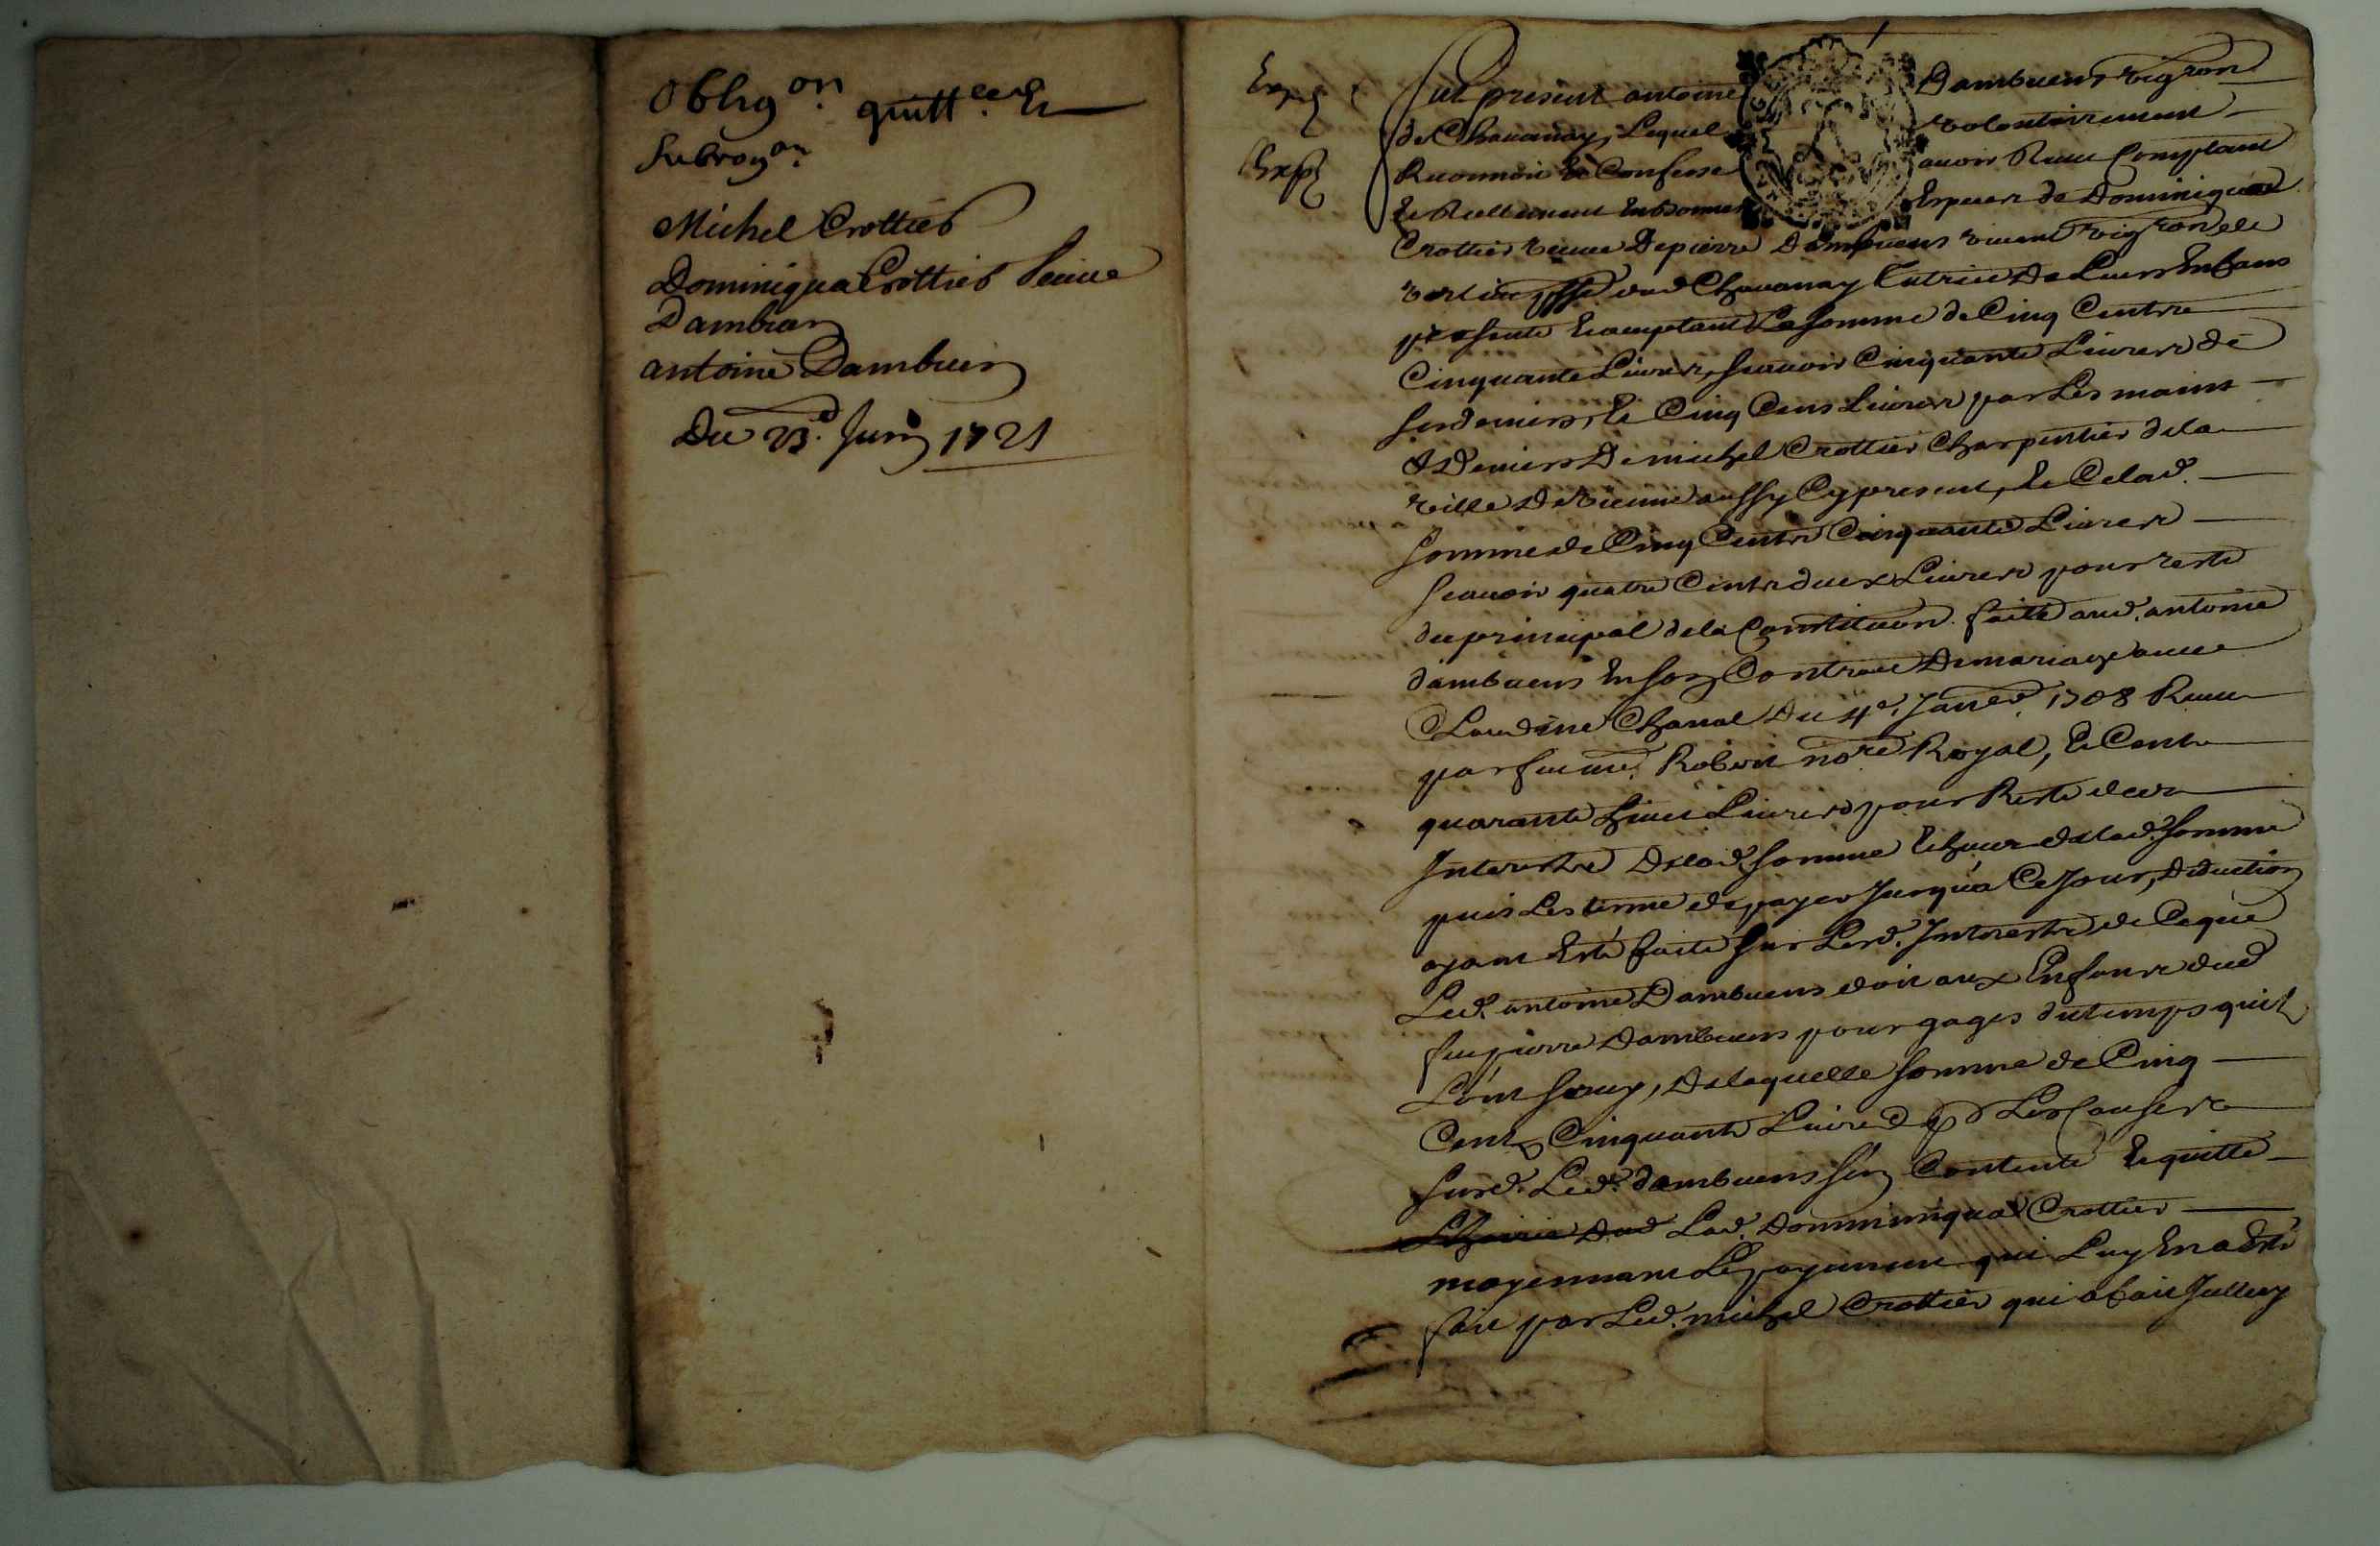 Oblig.on quitt.ce Et
Subrog.on
Michel Crottier
Dominiqua Crottier Veuve
Dambuen
antoine Dambuen
Du 23.e Juin 1721
Exp.
Exp.
fut present antoine Dambuens vigneron
de Chavanay, Lequel volontairement
Reconnoit Et Confesse avoir Receu Comptant
Et Reellement de Dominique
Crottier veuve De pierre Dambuens vivant vigneron de
dud Chavanay tutrice De Leurs Enfans
presente Et acceptant La somme de Cinq Centz
Cinquante Livres, scavoir Cinquante Livres de
ses deniers, Et Cinq Cens Livres par Les mains
& Deniers De michel Crottier Charpentier de la
ville De vienne aussy Cy present, Et Celad.
somme de Cinq Centz Cinquante Livres
scavoir quatre Centz deux Livres pour reste
du principal de la Constitution faitte aud. antoine
dambuens En son Contract De mariage avec
Claudine Chanal Du 4e. Janer. 1708 Receu
par feu me. Robert no.re Royal, Et Cent
quarante huict Livres pour Reste des
Interestz De lad. somme de lad. somme
puis Les terme de payer Jusqu'a Ce Jour, deduction
ayant Esté faite sur Lesd. Interestz de Ceque
Led. antoine Dambuens doit aux Enfans dud
feu pierre Dambuens pour gages du temps quil
Lont servy, De laquelle somme de Cinq
Centz Cinquante Livres Les causes
susd. Led. dambuens sen Contente Et quitte
Dud Lad. Dominiqua Crottier
moyennant Le payement qui Luy En a Esté
fait par Led. michel Crottier qui a fait